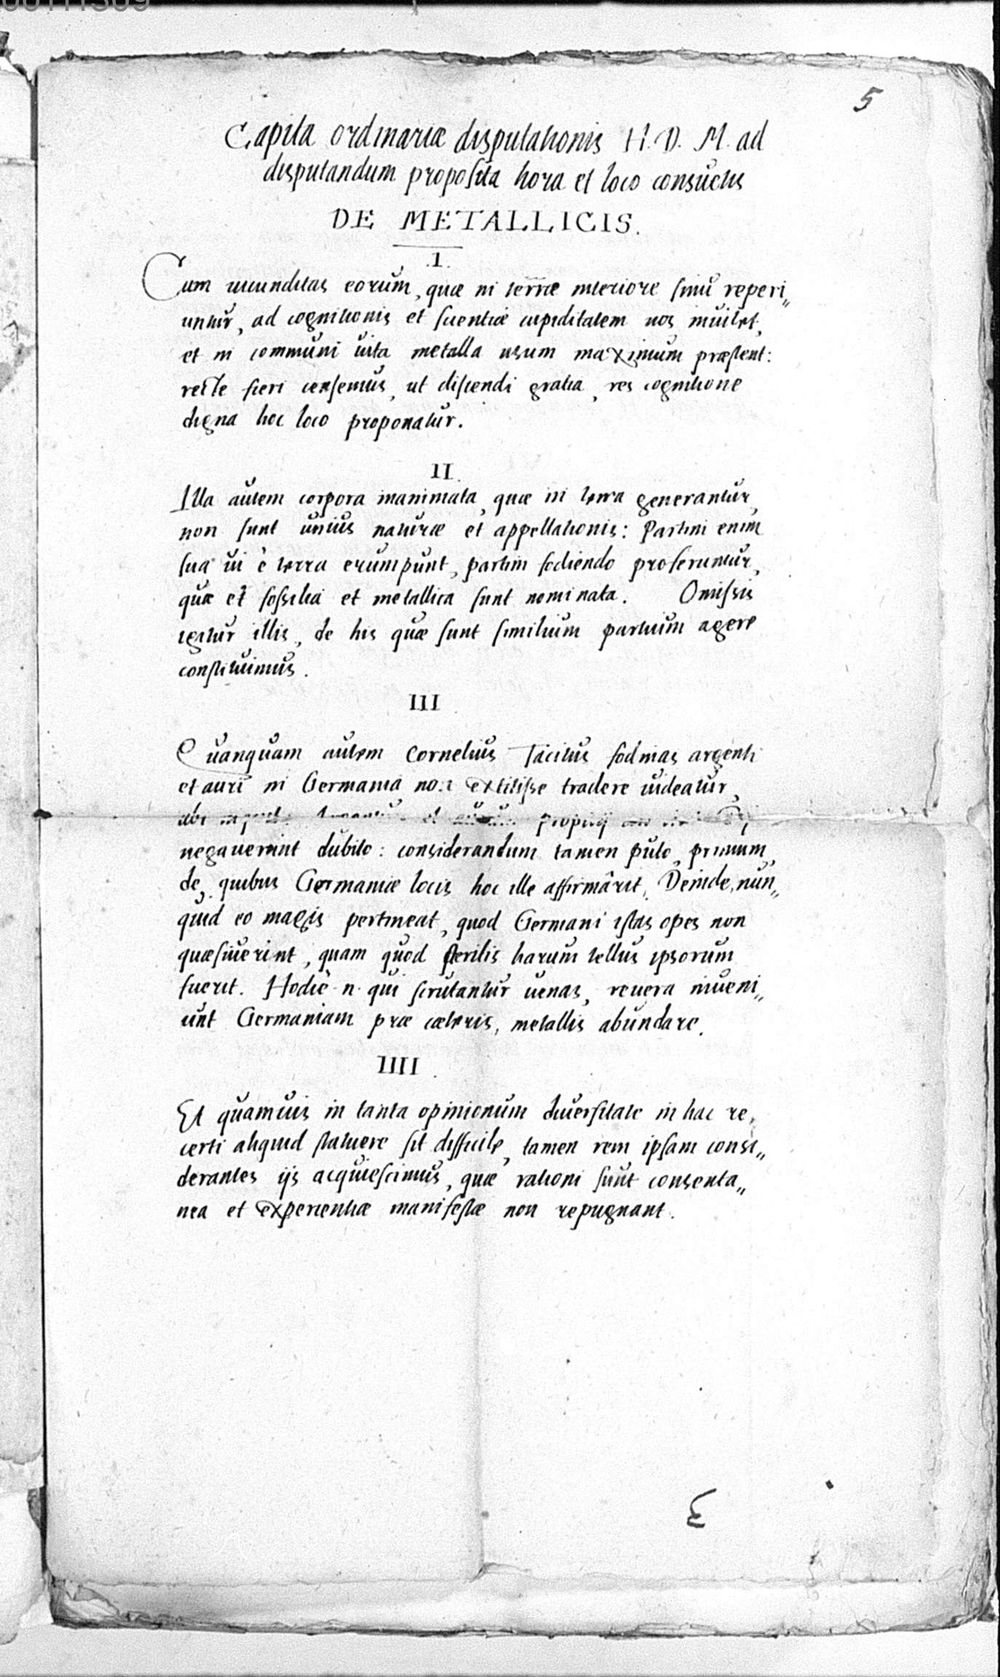 5
Capita ordinariæ disputationis H. D. M. ad
disputandum proposita hora et loco consuetis
DE METALLICIS.
I.
Cum iucunditas eorum, quæ in terræ interiore sinu reperi„
untur, ad cognitionis et scientiæ cupiditatem nos inuitet,
et in communi uita metalla usum maximum præstent:
recte fieri censemus, ut discendi gratia, res cognitione
digna hoc loco proponatur.
II.
Illa autem corpora inanimata, quæ in terra generantur,
non sunt unius naturæ et appellationis: Partim enim
sua ui è terra erumpunt, partim fodiendo proferuntur,
quæ et fossilia et metallica sunt nominata. Omissis
igitur illis, de his quæ sunt similium partium agere
constituimus.
III
Quanquam autem Cornelius Tacitus fodinas argenti
et auri in Germania non extitisse tradere uideatur,
negauerint dubito: considerandum tamen puto, primum,
de quibus Germaniæ locis hoc ille affirmârit, Deinde, nun„
quid eo magis pertineat, quod Germani istas opes non
quæsiuerint, quam quod sterilis harum tellus ipsorum
fuerit. Hodiè n. qui scrutantur uenas, reuera inueni„
unt Germaniam præ cæteris, metallis abundare.
IIII.
Et quamuis in tanta opinionum diuersitate in hac re,
certi aliquid statuere sit difficile, tamen rem ipsam consi„
derantes ijs acquiescimus, quæ rationi sunt consenta„
nea et experientiæ manifestæ non repugnant.